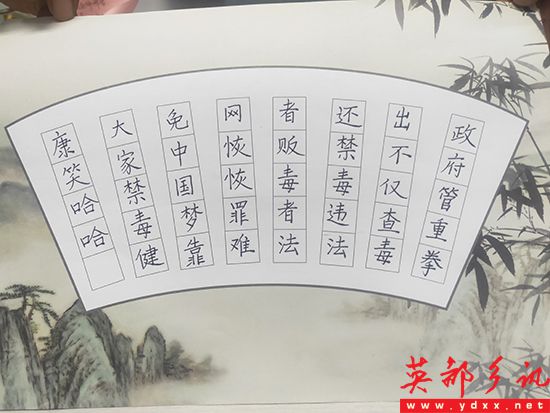 政府管重拳
出不仅查毒
还禁毒违法
者贩毒者法
网恢恢罪难
免中国梦靠
大家禁毒健
康笑哈哈
英都乡讯
www.ydxx.net